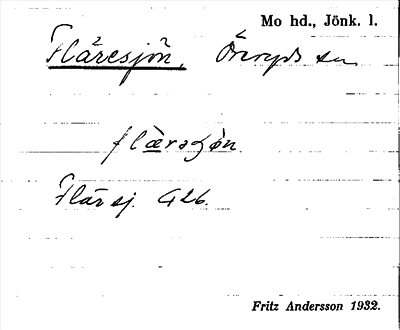 Mo hd., Jönk. l.
Flåresjön, Öreryds sn
flå̀rəʃø̀n
Flåresj. G26.
Fritz Andersson 1932.